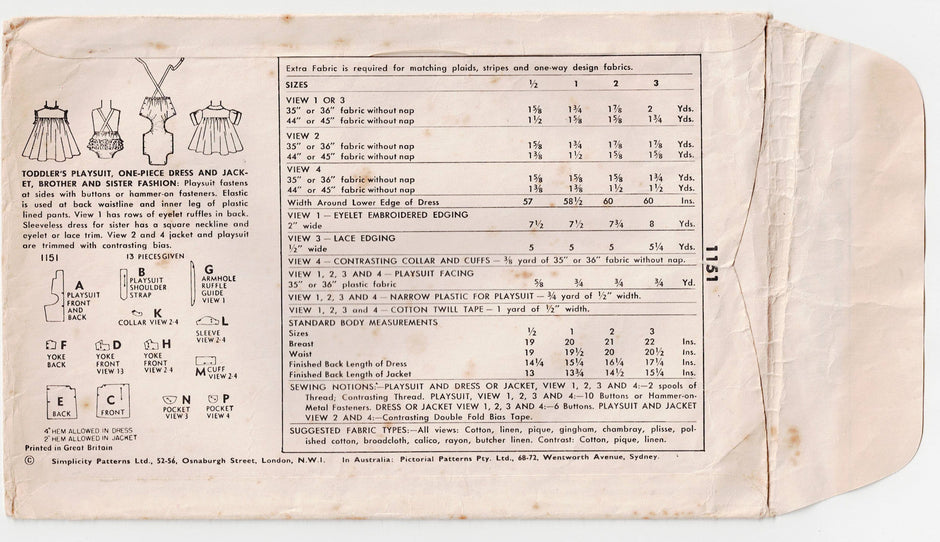 TODDLER'S PLAYSUIT, ONE-PIECE DRESS AND JACK-
ET, BROTHER AND SISTER FASHION: Playsuit fastens
at sides with buttons or hammer-on fasteners. Elastic
is used at back waistline and inner leg of plastic
lined pants. View 1 has rows of eyelet ruffles in back.
Sleeveless dress for sister has a square neckline and
eyelet or lace trim. View 2 and 4 jacket and playsuit
are trimmed with contrasting bias.
1151 13 PIECES GIVEN
A
PLAYSUIT
FRONT
AND
BACK
B
PLAYSUIT
SHOULDER
STRAP
G
ARMHOLE
RUFFLE
GUIDE
VIEW 1
K
COLLAR VIEW 2·4
L
SLEEVE
VIEW 2·4
F
YOKE
BACK
D
YOKE
FRONT
VIEW 1 3
H
YOKE
FRONT
VIEW 2·4
M CUFF
VIEW 2·4
E
BACK
C
FRONT
N
POCKET
VIEW 3
P
POCKET
VIEW 4
4" HEM ALLOWED IN DRESS
2" HEM ALLOWED IN JACKET
Printed in Great Britain
Extra Fabric is required for matching plaids, stripes and one-way design fabrics.
SIZES ½ 1 2 3
VIEW 1 OR 3
35" or 36" fabric without nap 1⅝ 1¾ 1⅞ 2 Yds.
44" or 45" fabric without nap 1½ 1⅝ 1⅝ 1¾ Yds.
VIEW 2
35" or 36" fabric without nap 1⅝ 1¾ 1⅞ 1⅞ Yds.
44" or 45" fabric without nap 1⅜ 1½ 1⅝ 1⅝ Yds.
VIEW 4
35" or 36" fabric without nap 1⅝ 1⅝ 1⅝ 1¾ Yds.
44" or 45" fabric without nap 1⅜ 1⅜ 1½ 1½ Yds.
Width Around Lower Edge of Dress 57 58½ 60 60 Ins.
VIEW 1 — EYELET EMBROIDERED EDGING
2" wide 7½ 7½ 7¾ 8 Yds.
VIEW 3 — LACE EDGING
½" wide 5 5 5 5¼ Yds.
VIEW 4 — CONTRASTING COLLAR AND CUFFS — ⅜ yard of 35" or 36" fabric without nap.
VIEW 1, 2, 3 AND 4 — PLAYSUIT FACING
35" or 36" plastic fabric ⅝ ¾ ¾ ¾ Yd.
VIEW 1, 2, 3 AND 4 — NARROW PLASTIC FOR PLAYSUIT — ¾ yard of ½" width.
VIEW 1, 2, 3 and 4 — COTTON TWILL TAPE — 1 yard of ½" width.
STANDARD BODY MEASUREMENTS
Sizes ½ 1 2 3
Breast 19 20 21 22 Ins.
Waist 19 19½ 20 20½ Ins.
Finished Back Length of Dress 14¼ 15¼ 16¼ 17¼ Ins.
Finished Back Length of Jacket 13 13¾ 14½ 15¼ Ins.
SEWING NOTIONS:—PLAYSUIT AND DRESS OR JACKET, VIEW 1, 2, 3 AND 4:—2 spools of
Thread; Contrasting Thread. PLAYSUIT, VIEW 1, 2, 3 AND 4:—10 Buttons or Hammer-on-
Metal Fasteners. DRESS OR JACKET VIEW 1, 2, 3 AND 4:—6 Buttons. PLAYSUIT AND JACKET
VIEW 2 AND 4:—Contrasting Double Fold Bias Tape.
SUGGESTED FABRIC TYPES:—All views: Cotton, linen, pique, gingham, chambray, plisse, pol-
ished cotton, broadcloth, calico, rayon, butcher linen. Contrast: Cotton, pique, linen.
1151
© Simplicity Patterns Ltd., 52-56, Osnaburgh Street, London, N.W.1. In Australia: Pictorial Patterns Pty. Ltd., 68-72, Wentworth Avenue, Sydney.